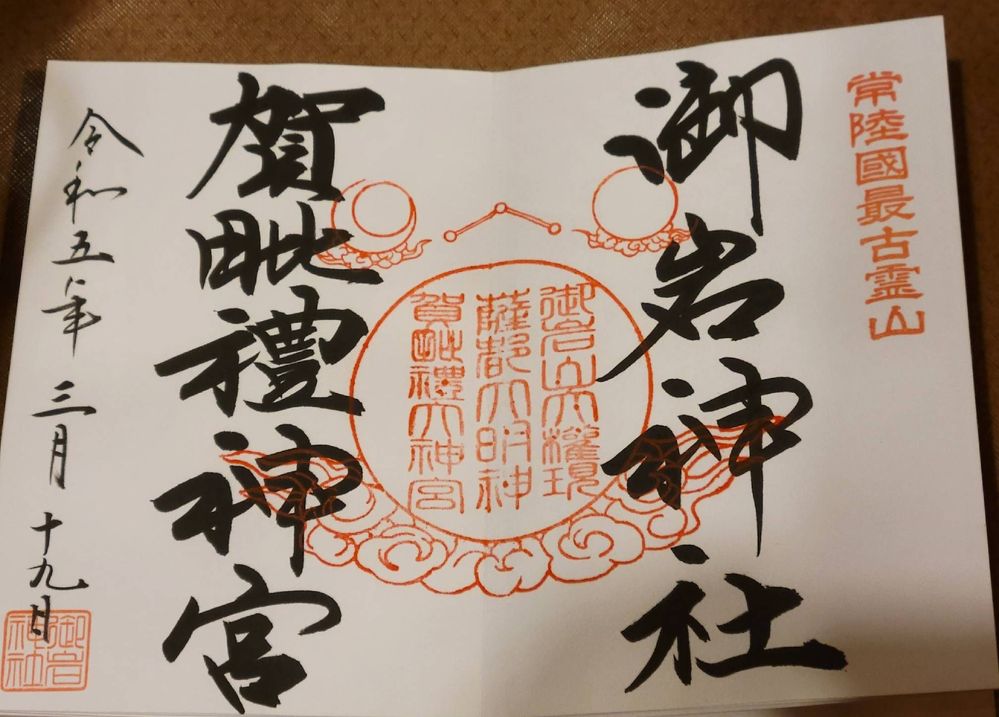 常陸國最古霊山
御岩神社
御岩山大権現
薩都大明神
賀毗禮大神宮
賀毗禮神宮
令和五年 三月 十九日
御岩神社